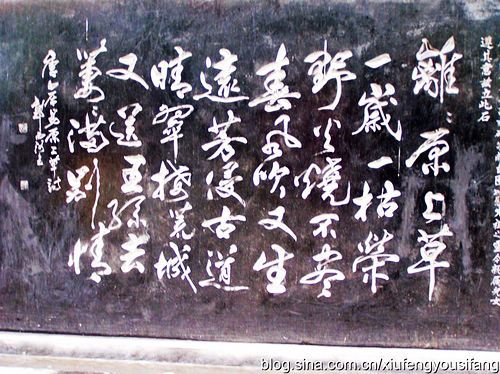 離〻原上草
一歲一枯榮
野火燒不盡
春风吹又生
遠芳侵古道
晴翠接荒城
又送王孫去
萋〻滿別情
唐白居易原上草詩
blog.sina.com.cn/xiufengyousifang